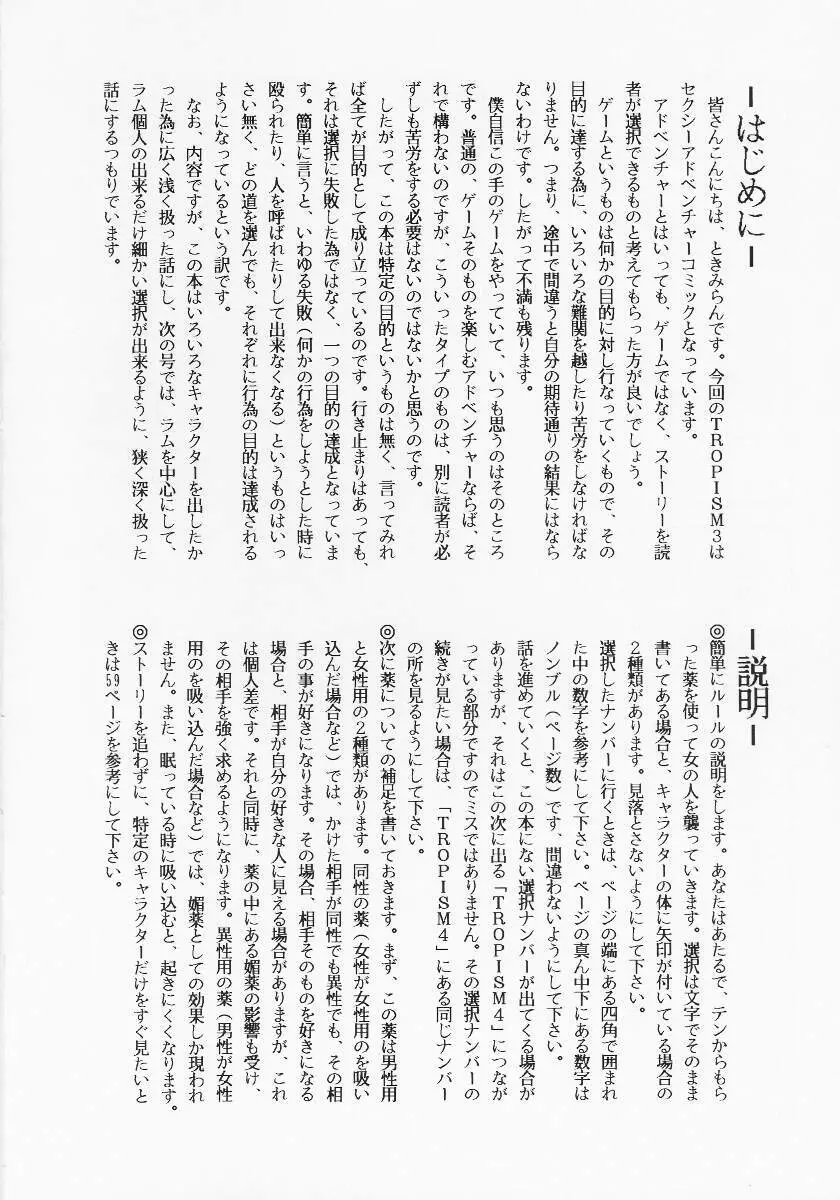 ーはじめにー
　皆さんこんにちは、ときみらんです。今回のTROPISM3は
セクシーアドベンチャーコミックとなっています。
　アドベンチャーとはいっても、ゲームではなく、ストーリーを読
者が選択できるものと考えてもらった方が良いでしょう。
　ゲームというものは何かの目的に対し行なっていくもので、その
目的に達する為に、いろいろな難関を越したり苦労をしなければな
りません。つまり、途中で間違うと自分の期待通りの結果にはなら
ないわけです。したがって不満も残ります。
　僕自信この手のゲームをやっていて、いつも思うのはそのところ
です。普通の、ゲームそのものを楽しむアドベンチャーならば、そ
れで構わないのですが、こういったタイプのものは、別に読者が必
ずしも苦労をする必要はないのではないかと思うのです。
　したがって、この本は特定の目的というものは無く、言ってみれ
ば全てが目的として成り立っているのです。行き止まりはあっても、
それは選択に失敗した為ではなく、一つの目的の達成となっていま
す。簡単に言うと、いわゆる失敗（何かの行為をしようとした時に
殴られたり、人を呼ばれたりして出来なくなる）というものはいっ
さい無く、どの道を選んでも、それぞれに行為の目的は達成される
ようになっているという訳です。
　なお、内容ですが、この本はいろいろなキャラクターを出したか
った為に広く浅く扱った話にし、次の号では、ラムを中心にして、
ラム個人の出来るだけ細かい選択が出来るように、狭く深く扱った
話にするつもりでいます。
ー説明ー
◎簡単にルールの説明をします。あなたはあたるで、テンからもら
った薬を使って女の人を襲っていきます。選択は文字でそのまま
書いてある場合と、キャラクターの体に矢印が付いている場合の
2種類があります。見落とさないようにして下さい。
選択したナンバーに行くときは、ページの端にある四角で囲まれ
た中の数字を参考にして下さい。ページの真ん中下にある数字は
ノンブル（ページ数）です、間違わないようにして下さい。
話を進めていくと、この本にない選択ナンバーが出てくる場合が
ありますが、それはこの次に出る「TROPISM4」につなが
っている部分ですのでミスではありません。その選択ナンバーの
続きが見たい場合は、「TROPISM4」にある同じナンバー
の所を見るようにして下さい。
◎次に薬についての補足を書いておきます。まず、この薬は男性用
と女性用の2種類があります。同性の薬（女性が女性用のを吸い
込んだ場合など）では、かけた相手が同性でも異性でも、その相
手の事が好きになります。その場合、相手そのものを好きになる
場合と、相手が自分の好きな人に見える場合がありますが、これ
は個人差です。それと同時に、薬の中にある媚薬の影響も受け、
その相手を強く求めるようになります。異性用の薬（男性が女性
用のを吸い込んだ場合など）では、媚薬としての効果しか現われ
ません。また、眠っている時に吸い込むと、起きにくくなります。
◎ストーリーを追わずに、特定のキャラクターだけをすぐ見たいと
きは59ページを参考にして下さい。